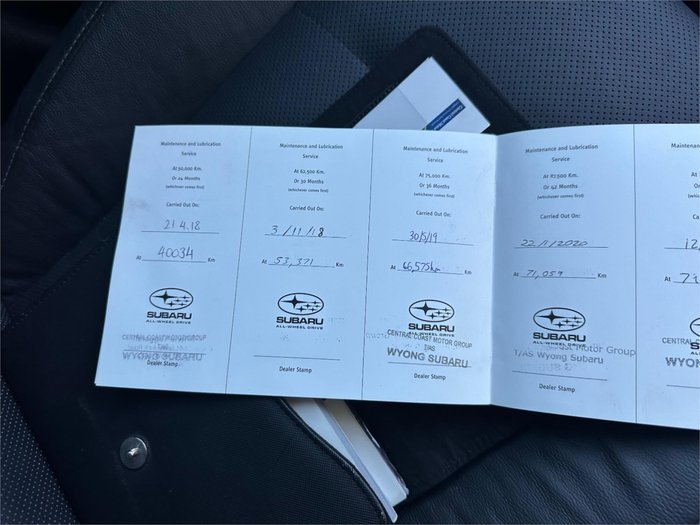 Maintenance and Lubrication
Service
At 50,000 Km.
Or 24 Months
(whichever comes first)
Carried Out On:
21 4.18
At 40034 Km
SUBARU
ALL-WHEEL DRIVE
CENTRAL COAST MOTOR GROUP
T/AS
WYONG SUBARU
Dealer Stamp
Maintenance and Lubrication
Service
At 62,500 Km.
Or 30 Months
(whichever comes first)
Carried Out On:
3/11/18
At 53,371 Km
SUBARU
ALL-WHEEL DRIVE
Dealer Stamp
Maintenance and Lubrication
Service
At 75,000 Km.
Or 36 Months
(whichever comes first)
Carried Out On:
30/5/19
At 66,575km Km
SUBARU
ALL-WHEEL DRIVE
CENTRAL COAST MOTOR GROUP
T/AS
WYONG SUBARU
Dealer Stamp
Maintenance and Lubrication
Service
At 87,500 Km.
Or 42 Months
(whichever comes first)
Carried Out On:
22/1/2020
At 71,059 Km
SUBARU
ALL-WHEEL DRIVE
Coast Motor Group
T/AS Wyong Subaru
Dealer Stamp
Mainten
At
Or
(which
Carri
12
At
SU
ALL-W
CENTRAL C
WYON
Dea